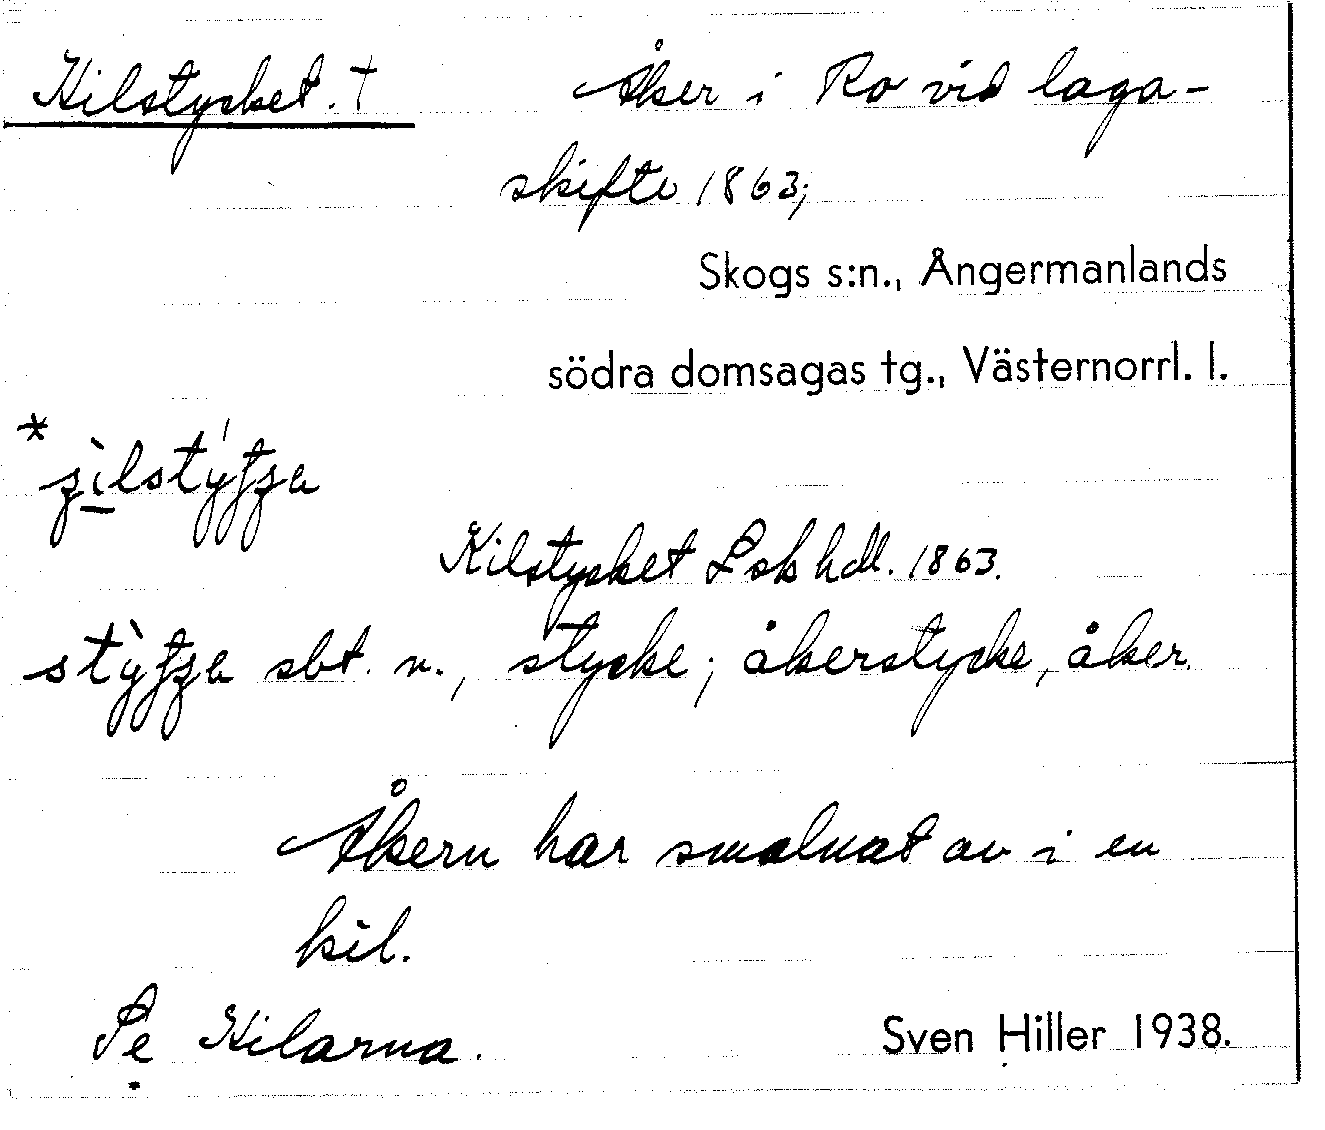 Kilstycket. † Åker i Ro vid laga-
skifte 1863;
Skogs s:n., Ångermanlands
södra domsagas tg., Västernorrl. l.
Kilstycket Lsk hdl. 1863.
sbt. n., stycke; åkerstycke, åker.
Åkern har smalnat av i en
kil.
Se Kilarna. Sven Hiller 1938.